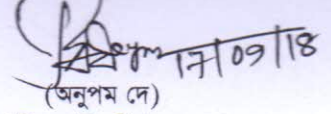 17/09/18
(অনুপম দে)